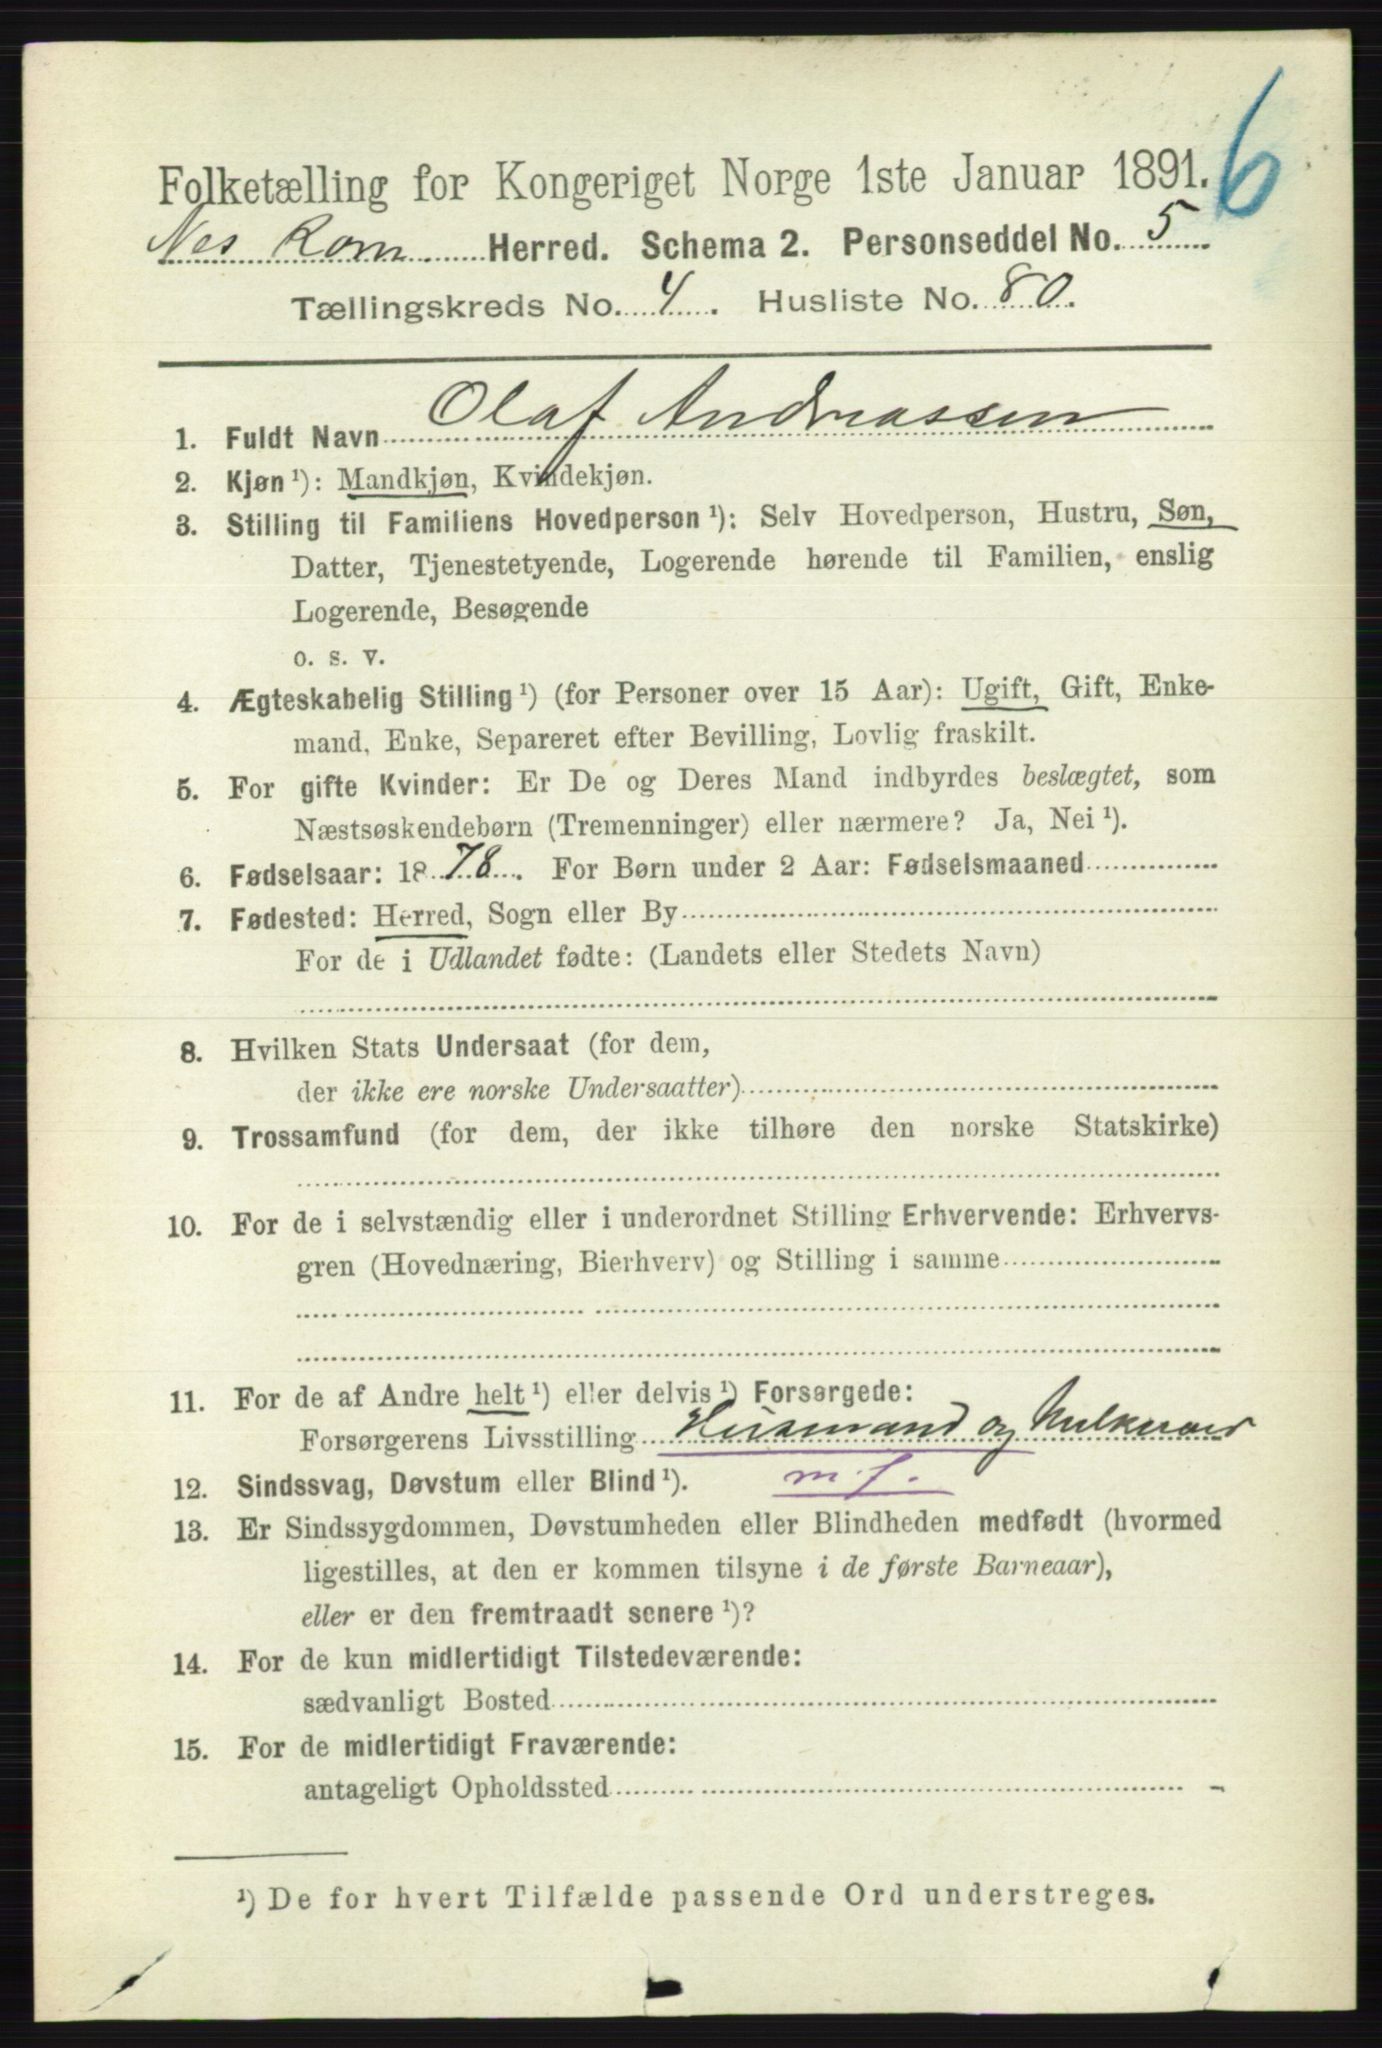 6
Folketælling for Kongeriget Norge 1ste Januar 1891.
Nes Rom. Herred. Schema 2. Personseddel No. 5
Tællingskreds No. 4. Husliste No. 80.
1. Fuldt Navn Olaf Andreassen
2. Kjøn ¹): Mandkjøn, Kvindekjøn.
3. Stilling til Familiens Hovedperson ¹): Selv Hovedperson, Hustru, Søn,
Datter, Tjenestetyende, Logerende hørende til Familien, enslig
Logerende, Besøgende
o. s. v.
4. Ægteskabelig Stilling ¹) (for Personer over 15 Aar): Ugift, Gift, Enke-
mand, Enke, Separeret efter Bevilling, Lovlig fraskilt.
5. For gifte Kvinder: Er De og Deres Mand indbyrdes beslægtet, som
Næstsøskendebørn (Tremenninger) eller nærmere? Ja, Nei ¹).
6. Fødselsaar: 1878. For Børn under 2 Aar: Fødselsmaaned
7. Fødested: Herred, Sogn eller By
For de i Udlandet fødte: (Landets eller Stedets Navn)
8. Hvilken Stats Undersaat (for dem,
der ikke ere norske Undersaatter)
9. Trossamfund (for dem, der ikke tilhøre den norske Statskirke)
10. For de i selvstændig eller i underordnet Stilling Erhvervende: Erhvervs-
gren (Hovednæring, Bierhverv) og Stilling i samme
11. For de af Andre helt ¹) eller delvis ¹) Forsørgede:
Forsørgerens Livsstilling Husmand og
m. j.
12. Sindssvag, Døvstum eller Blind ¹).
13. Er Sindssygdommen, Døvstumheden eller Blindheden medfødt (hvormed
ligestilles, at den er kommen tilsyne i de første Barneaar),
eller er den fremtraadt senere ¹)?
14. For de kun midlertidigt Tilstedeværende:
sædvanligt Bosted
15. For de midlertidigt Fraværende:
antageligt Opholdssted
¹) De for hvert Tilfælde passende Ord understreges.